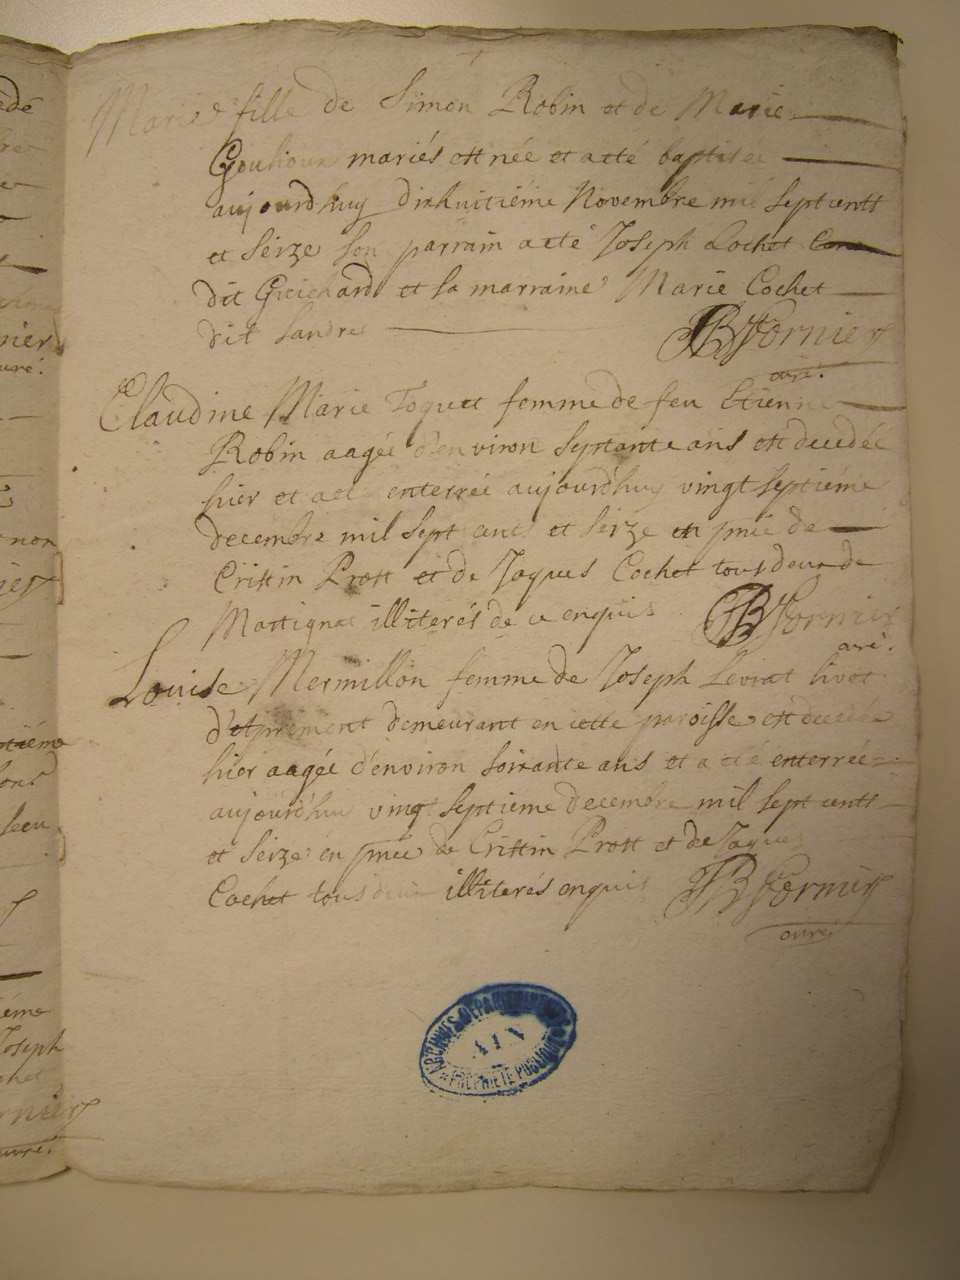 Marie fille de Simon Robin et de Marie
Gouhioux mariés est née et a eté baptisée
aujourdhuy dixhuitiéme Novembre mil sept cents
et seize son parrain a eté Joseph Cochet
dit Greichard et la marraine Marie Cochet
dit Landre
JB Fornier
curé.
Claudine Marie Toquet femme de feu Etienne
Robin aagée d'environ septante ans est decedée
hier et a eté enterrée aujourdhuy vingt septiéme
decembre mil sept cents et seize en pnce de
Cristin Prost et de Jaques Cochet tous deux de
Martignat illiterés de ce enquis
JB Fornier
curé.
Louise Mermillon femme de Joseph Levrat
demeurant en cette paroisse est decedée
hier aagée d'environ soixante ans et a eté enterrée
aujourdhuy vingt septieme decembre mil sept cents
et seize en pnce de Cristin Prost et de Jaques
Cochet tous deux illiterés enquis
JB Fornier
curé
ARCHIVES DEPARTEMENTALES
AIN
PROPRIETE PUBLIQUE